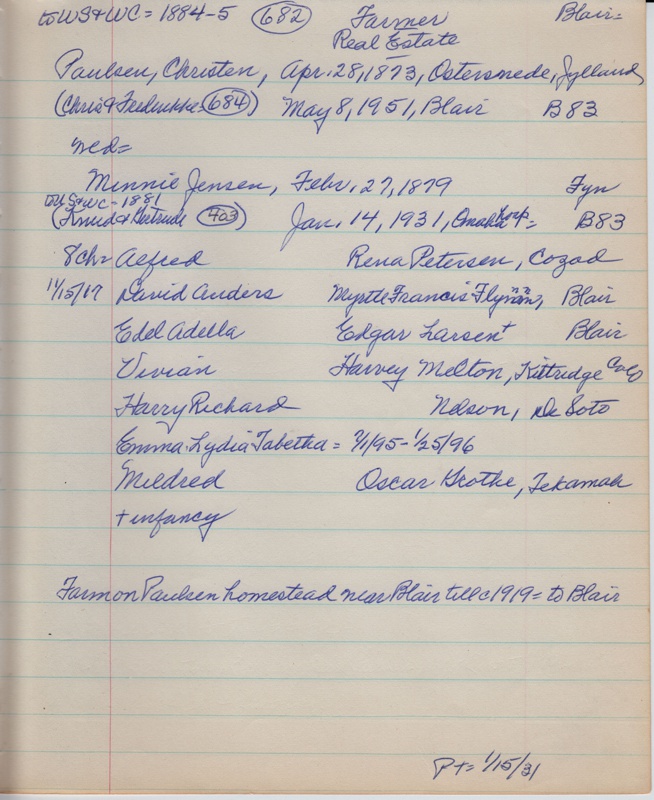 to WS+WC = 1884-5 682 Farmer Blair=
Real Estate
Paulsen, Christen, Apr. 28, 1873, Ostersnede, Jylland
(Chris & Fredrikke 684) May 8, 1951, Blair B83
Med=
Minnie Jensen, Febr. 27, 1879 Fyn
to US+WC=1881
(Knud & Gertrude 403) Jan. 14, 1931, Omaha Hosp= B83
8chr Alfred Rena Petersen, Cozad
11/15/07 David Anders Myrtle Francis Flynn, Blair
Edel Adella Edgar Larsen+ Blair
Vivian Harvey Melton, Kittridge Colo
Harry Richard Nelson, De Soto
Emma Lydia Tabetha = 7/1/95-1/25/96
Mildred Oscar Grothe, Tekamah
+ infancy
Farm on Paulsen homestead near Blair till c1919= to Blair
PT= 1/15/31